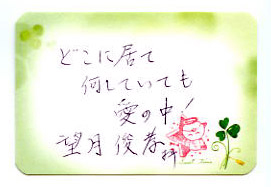 どこに居て
何していても
愛の中!
望月俊孝
拝